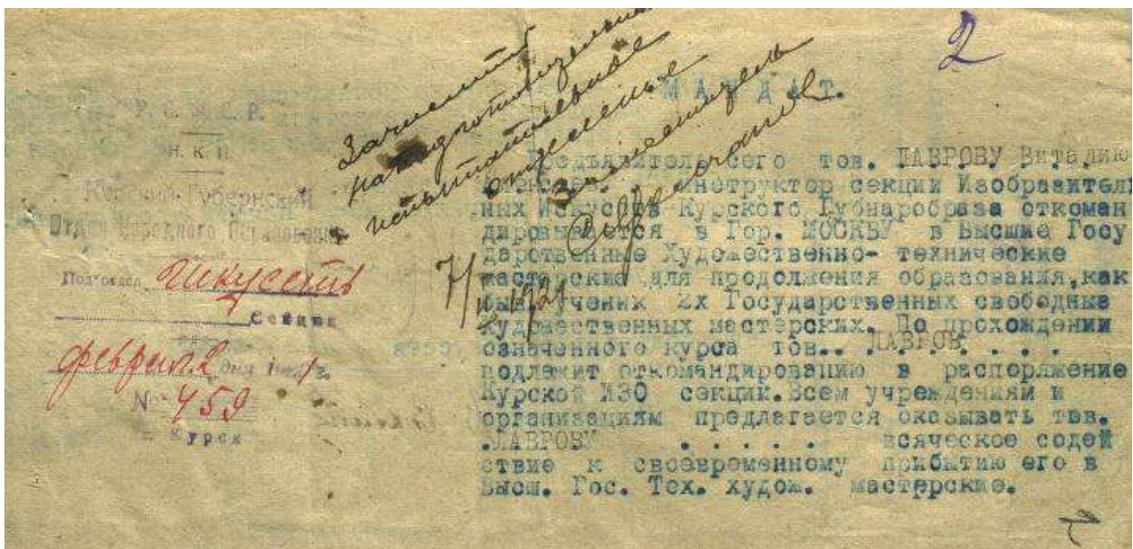 2
Р. С. Ф. С. Р.
Н. К. П.
Курский Губернский
Отдел Народного Образования
Подотдел искусств
Секция
февраля 2 дня 1921 г.
№ 459
г. Курск
Зачислить
на подготовительно
испытательное
отделение
Заместитель
7/II 1921
МАНДАТ.
Предъявитель сего тов. ЛАВРОВУ Виталию
инструктор секции Изобразитель
ных Искусств Курского Губнаробраза откоман
дировывается в Гор. МОСКВУ в Высшие Госу
дарственные Художественно- технические
мастерские для продолжения образования, как
быв. ученик 2х Государственных свободных
художественных мастерских. По прохождении
означенного курса тов.. ЛАВРОВ . . . . .
подлежит откомандированию в распоряжение
Курской ИЗО секции. Всем учреждениям и
организациям предлагается оказывать тов.
.ЛАВРОВУ . . . . . всяческое содей
ствие к своевременному прибытию его в
Высш. Гос. Тех. худож. мастерские.